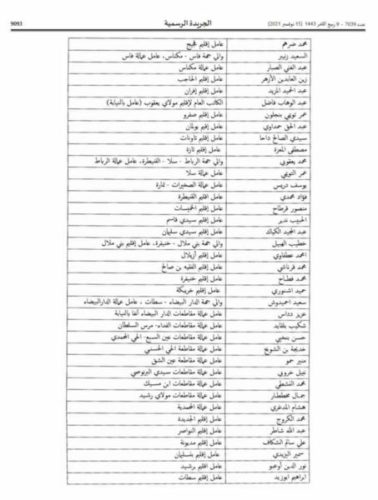 عدد 7039 - 9 ربيع الآخر 1443 (15 نوفمبر 2021)
الجريدة الرسمية
9093
محمد ضرهم عامل إقليم فجيج
السعيد زنيبر والي جهة فاس - مكناس، عامل عمالة فاس
عبد الغني الصبار عامل عمالة مكناس
زين العابدين الأزهر عامل إقليم الحاجب
عبد الحميد المزيد عامل إقليم إفران
عبد الوهاب فاضل الكاتب العام لإقليم مولاي يعقوب (عامل بالنيابة)
عمر تويمي بنجلون عامل إقليم صفرو
عبد الحق حمداوي عامل إقليم بولمان
سيدي الصالح داحا عامل إقليم تاونات
مصطفى المعزة عامل إقليم تازة
محمد يعقوبي والي جهة الرباط - سلا - القنيطرة، عامل عمالة الرباط
عمر التويمي عامل عمالة سلا
يوسف دريس عامل عمالة الصخيرات - تمارة
فؤاد محمدي عامل إقليم القنيطرة
منصور قرطاح عامل إقليم الخميسات
الحبيب ندير عامل إقليم سيدي قاسم
عبد المجيد الكياك عامل إقليم سيدي سليمان
خطيب الهبيل والي جهة بني ملال - خنيفرة، عامل إقليم بني ملال
محمد عطفاوي عامل إقليم أزيلال
محمد قرناشي عامل إقليم الفقيه بن صالح
محمد فطاح عامل إقليم خنيفرة
حميد اشنوري عامل إقليم خريبكة
سعيد احميدوش والي جهة الدار البيضاء - سطات، عامل عمالة الدارالبيضاء
عزيز دداس عامل عمالة مقاطعات الدار البيضاء أنفا بالنيابة
شكيب بلقايد عامل عمالة مقاطعات الفداء- مرس السلطان
حسن بنخيي عامل عمالة مقاطعات عين السبع- الحي المحمدي
خديجة بن الشويخ عامل عمالة مقاطعة الحي الحسني
منير حمو عامل عمالة مقاطعة عين الشق
نبيل خروبي عامل عمالة مقاطعات سيدي البرنوصي
محمد النشطي عامل عمالة مقاطعات ابن مسيك
جمال مخططار عامل عمالة مقاطعات مولاي رشيد
هشام المدغري عامل عمالة المحمدية
محمد الكروج عامل إقليم الجديدة
عبد الله شاطر عامل إقليم النواصر
علي سالم الشكاف عامل إقليم مديونة
سمير اليزيدي عامل إقليم بنسليمان
نور الدين أوعبو عامل اقليم برشيد
ابراهيم ابوزيد عامل إقليم سطات